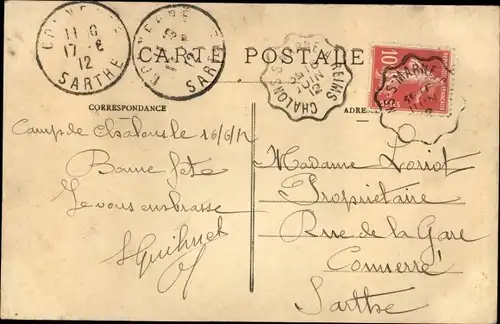 CONNERRÉ
11 - 6
17 - 6
12
SARTHE
CONNERRÉ
12
SARTHE
CARTE POSTALE
CHALONS-S-MARNE REIMS
JUIN
12
10
CORRESPONDANCE
ADRE
Camp de Châlons le 16/6/12
Bonne fête
Je vous embrasse
Madame Loriot
Propriétaire
Rue de la Gare
Connerré
Sarthe